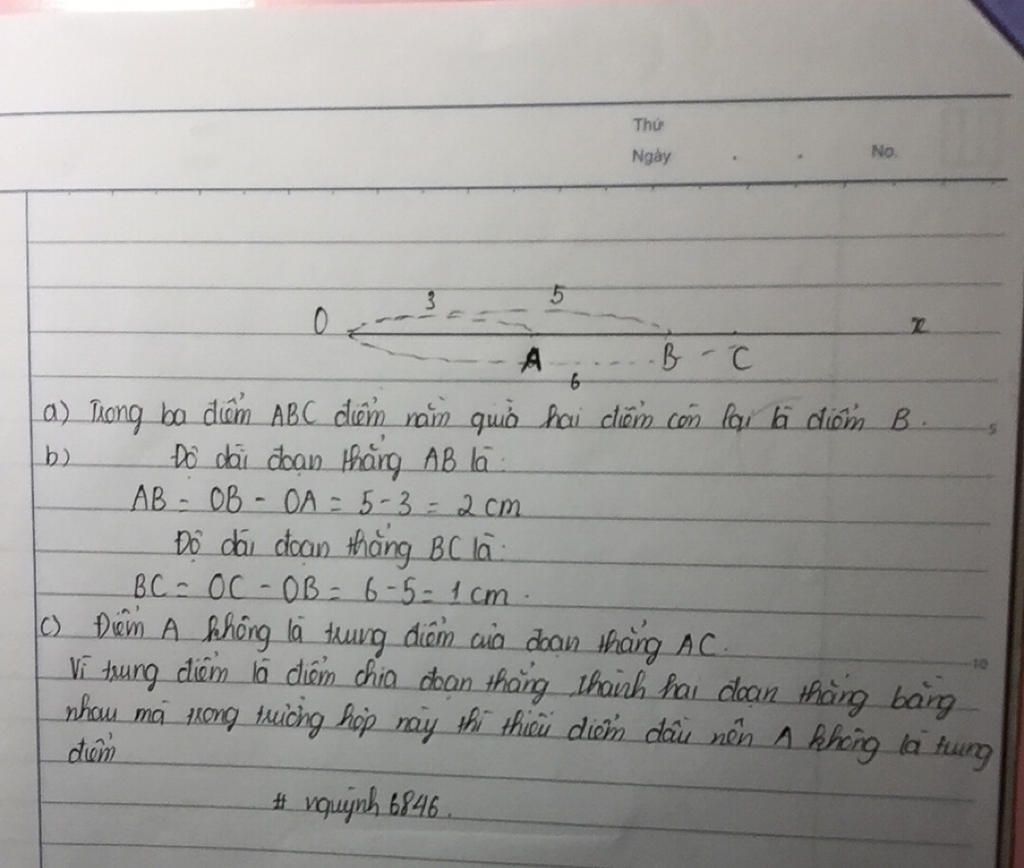 Thứ
Ngày . . No.
3 5
O x
A B - C
6
a) Trong ba điểm ABC điểm nằm giữa hai điểm còn lại là điểm B.
5
b) Độ dài đoạn thẳng AB là:
AB = OB - OA = 5 - 3 = 2 cm
Độ dài đoạn thẳng BC là:
BC = OC - OB = 6 - 5 = 1 cm.
c) Điểm A không là trung điểm của đoạn thẳng AC.
10
Vì trung điểm là điểm chia đoạn thẳng thành hai đoạn thẳng bằng
nhau mà trong trường hợp này thì thiếu điểm đầu nên A không là trung
điểm
# nquỳnh 6846.